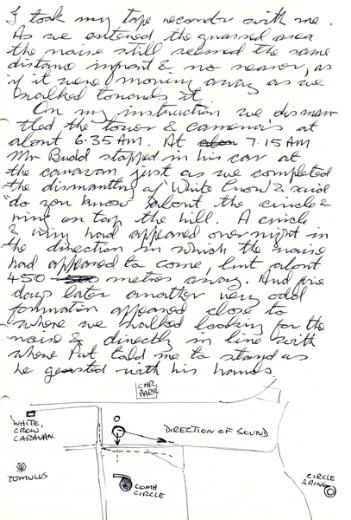 I took my tape recorder with me.
As we entered the grassed area
the noise still seemed the same
distance in front & no nearer, as
if it were moving away as we
walked towards it.
On my instruction we disman
tled the tower & cameras at
about 6:35 AM. At 7.15 AM
Mr Budd stopped in his car at
the caravan just as we completed
the dismantling of White Crow & said
"do you know about the circle &
ring on top the hill. A circle
& ring had appeared overnight in
the direction in which the noise
had appeared to come, but about
450 metres away. And five
days later another very odd
formation appeared close to
where we walked looking for the
noise & directly in line with
where Pat told me to stand as
he gestured with his hands
CAR
PARK
WHITE
CROW
CARAVAN
DIRECTION OF SOUND
TUMULUS
COMA
CIRCLE
CIRCLE
& RING